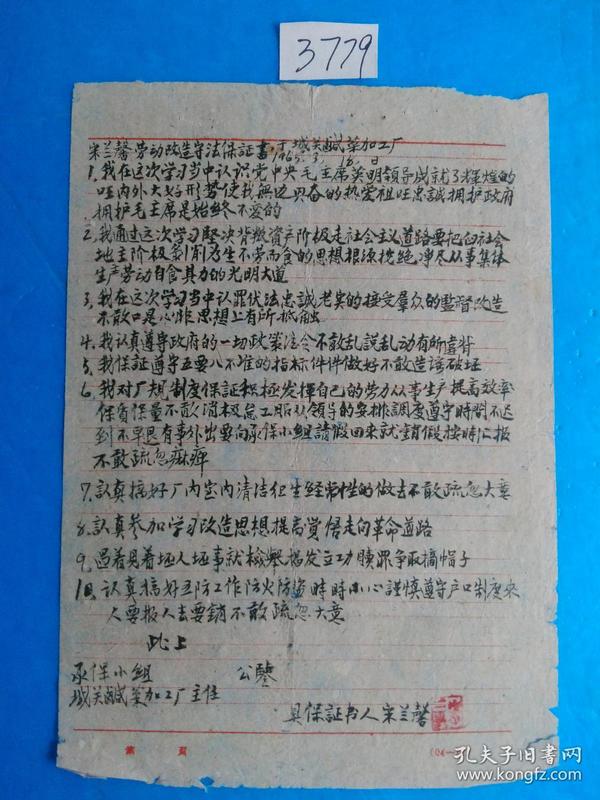 3779
宋兰馨劳动改造守法保証書 于城关鹹菜加工厂
1965.3.18.日
1.我在这次学习当中认识党中央毛主席英明領导成就了辉煌的
国内外大好形势使我無边兴奋的热爱祖国忠誠拥护政府
拥护毛主席是始終不变的
2.我通过这次学习堅决背叛資产阶极走社会主义道路要把旧社会
地主阶极剝削為生不劳而食的思想根源挖絶净尽从事集体
生产劳动自食其力的光明大道
3.我在这次学习当中认罪伏法忠誠老実的接受羣众的監督改造
不敢口是心非思想上有所抵触
4.我认真遵守政府的一切政策法令不敢乱説乱动有所違背
5.我保証遵守五要八不准的指标件件做好不敢造謡破坯
6.我对厂規制度保証积極发揮自己的劳力从事生产提高效率
保質保量不敢消极怠工服从領导的安排調度遵守時間不迟
到不早退有事外出要向承保小組請假回来就銷假按時汇报
不敢疏忽麻痺
7.认真搞好厂内室内清洁衛生経常性的做去不敢疏忽大意
8.认真参加学习改造思想提高覚悟走向革命道路
9.遇着見着坯人坯事就檢舉揭发立功贖罪争取摘帽子
10.认真搞好五防工作防火防盗時時小心謹慎遵守户口制度来
人要报人去要銷不敢疏忽大意
此上
承保小組 公鑒
城关鹹菜加工厂主任
具保証书人宋兰馨
第 頁
孔夫子旧書网
www.kongfz.com